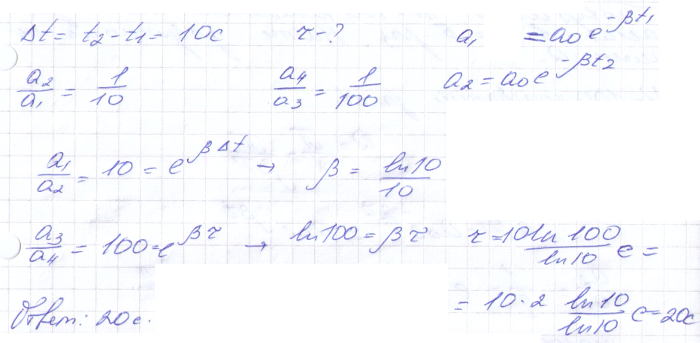 Δt = t₂ - t₁ = 10с   τ - ?   a₁ = a₀e^{-βt₁}
a₂/a₁ = 1/10   a₄/a₃ = 1/100   a₂ = a₀e^{-βt₂}
a₁/a₂ = 10 = e^{βΔt} → β = ln10/10
a₃/a₄ = 100 = e^{βτ} → ln100 = βτ   τ = 10ln100/ln10 с =
= 10·2 ln10/ln10 с = 20с
Ответ: 20с.